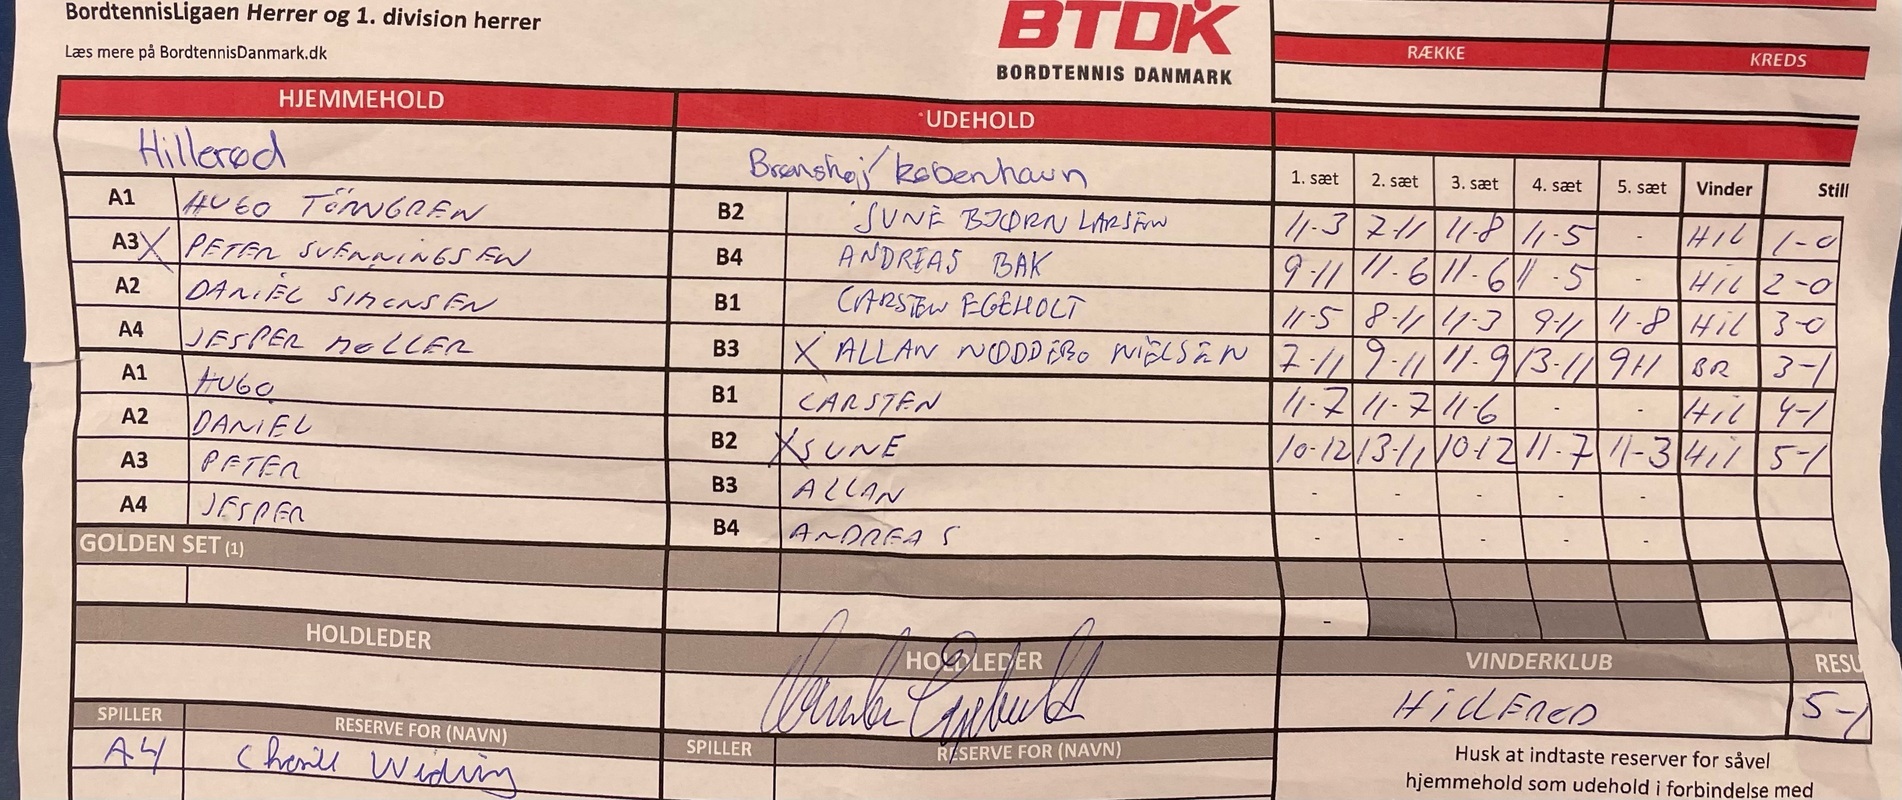 BordtennisLigaen Herrer og 1. division herrer
Læs mere på BordtennisDanmark.dk
BTDK
BORDTENNIS DANMARK
RÆKKE KREDS
HJEMMEHOLD UDEHOLD
Hillerød Brønshøj/København 1. sæt 2. sæt 3. sæt 4. sæt 5. sæt Vinder Still
A1 HUGO TÖRNGREN B2 SUNE BJØRN LARSEN 11-3 7-11 11-8 11-5 - HIL 1-0
A3 X PETER SVENNINGSEN B4 ANDREAS BAK 9-11 11-6 11-6 11-5 - HIL 2-0
A2 DANIEL SIMONSEN B1 CARSTEN EGEHOLT 11-5 8-11 11-3 9-11 11-8 HIL 3-0
A4 JESPER MØLLER B3 X ALLAN NØDDEBO NIELSEN 7-11 9-11 11-9 13-11 9-11 BR 3-1
A1 HUGO B1 CARSTEN 11-7 11-7 11-6 - - HIL 4-1
A2 DANIEL B2 X SUNE 10-12 13-11 10-12 11-7 11-3 HIL 5-1
A3 PETER B3 ALLAN - - - - -
A4 JESPER B4 ANDREAS - - - - -
GOLDEN SET (1)
-
HOLDLEDER HOLDLEDER VINDERKLUB RESU
HILLERØD 5-1
SPILLER RESERVE FOR (NAVN) SPILLER RESERVE FOR (NAVN)
A4
Husk at indtaste reserver for såvel
hjemmehold som udehold i forbindelse med